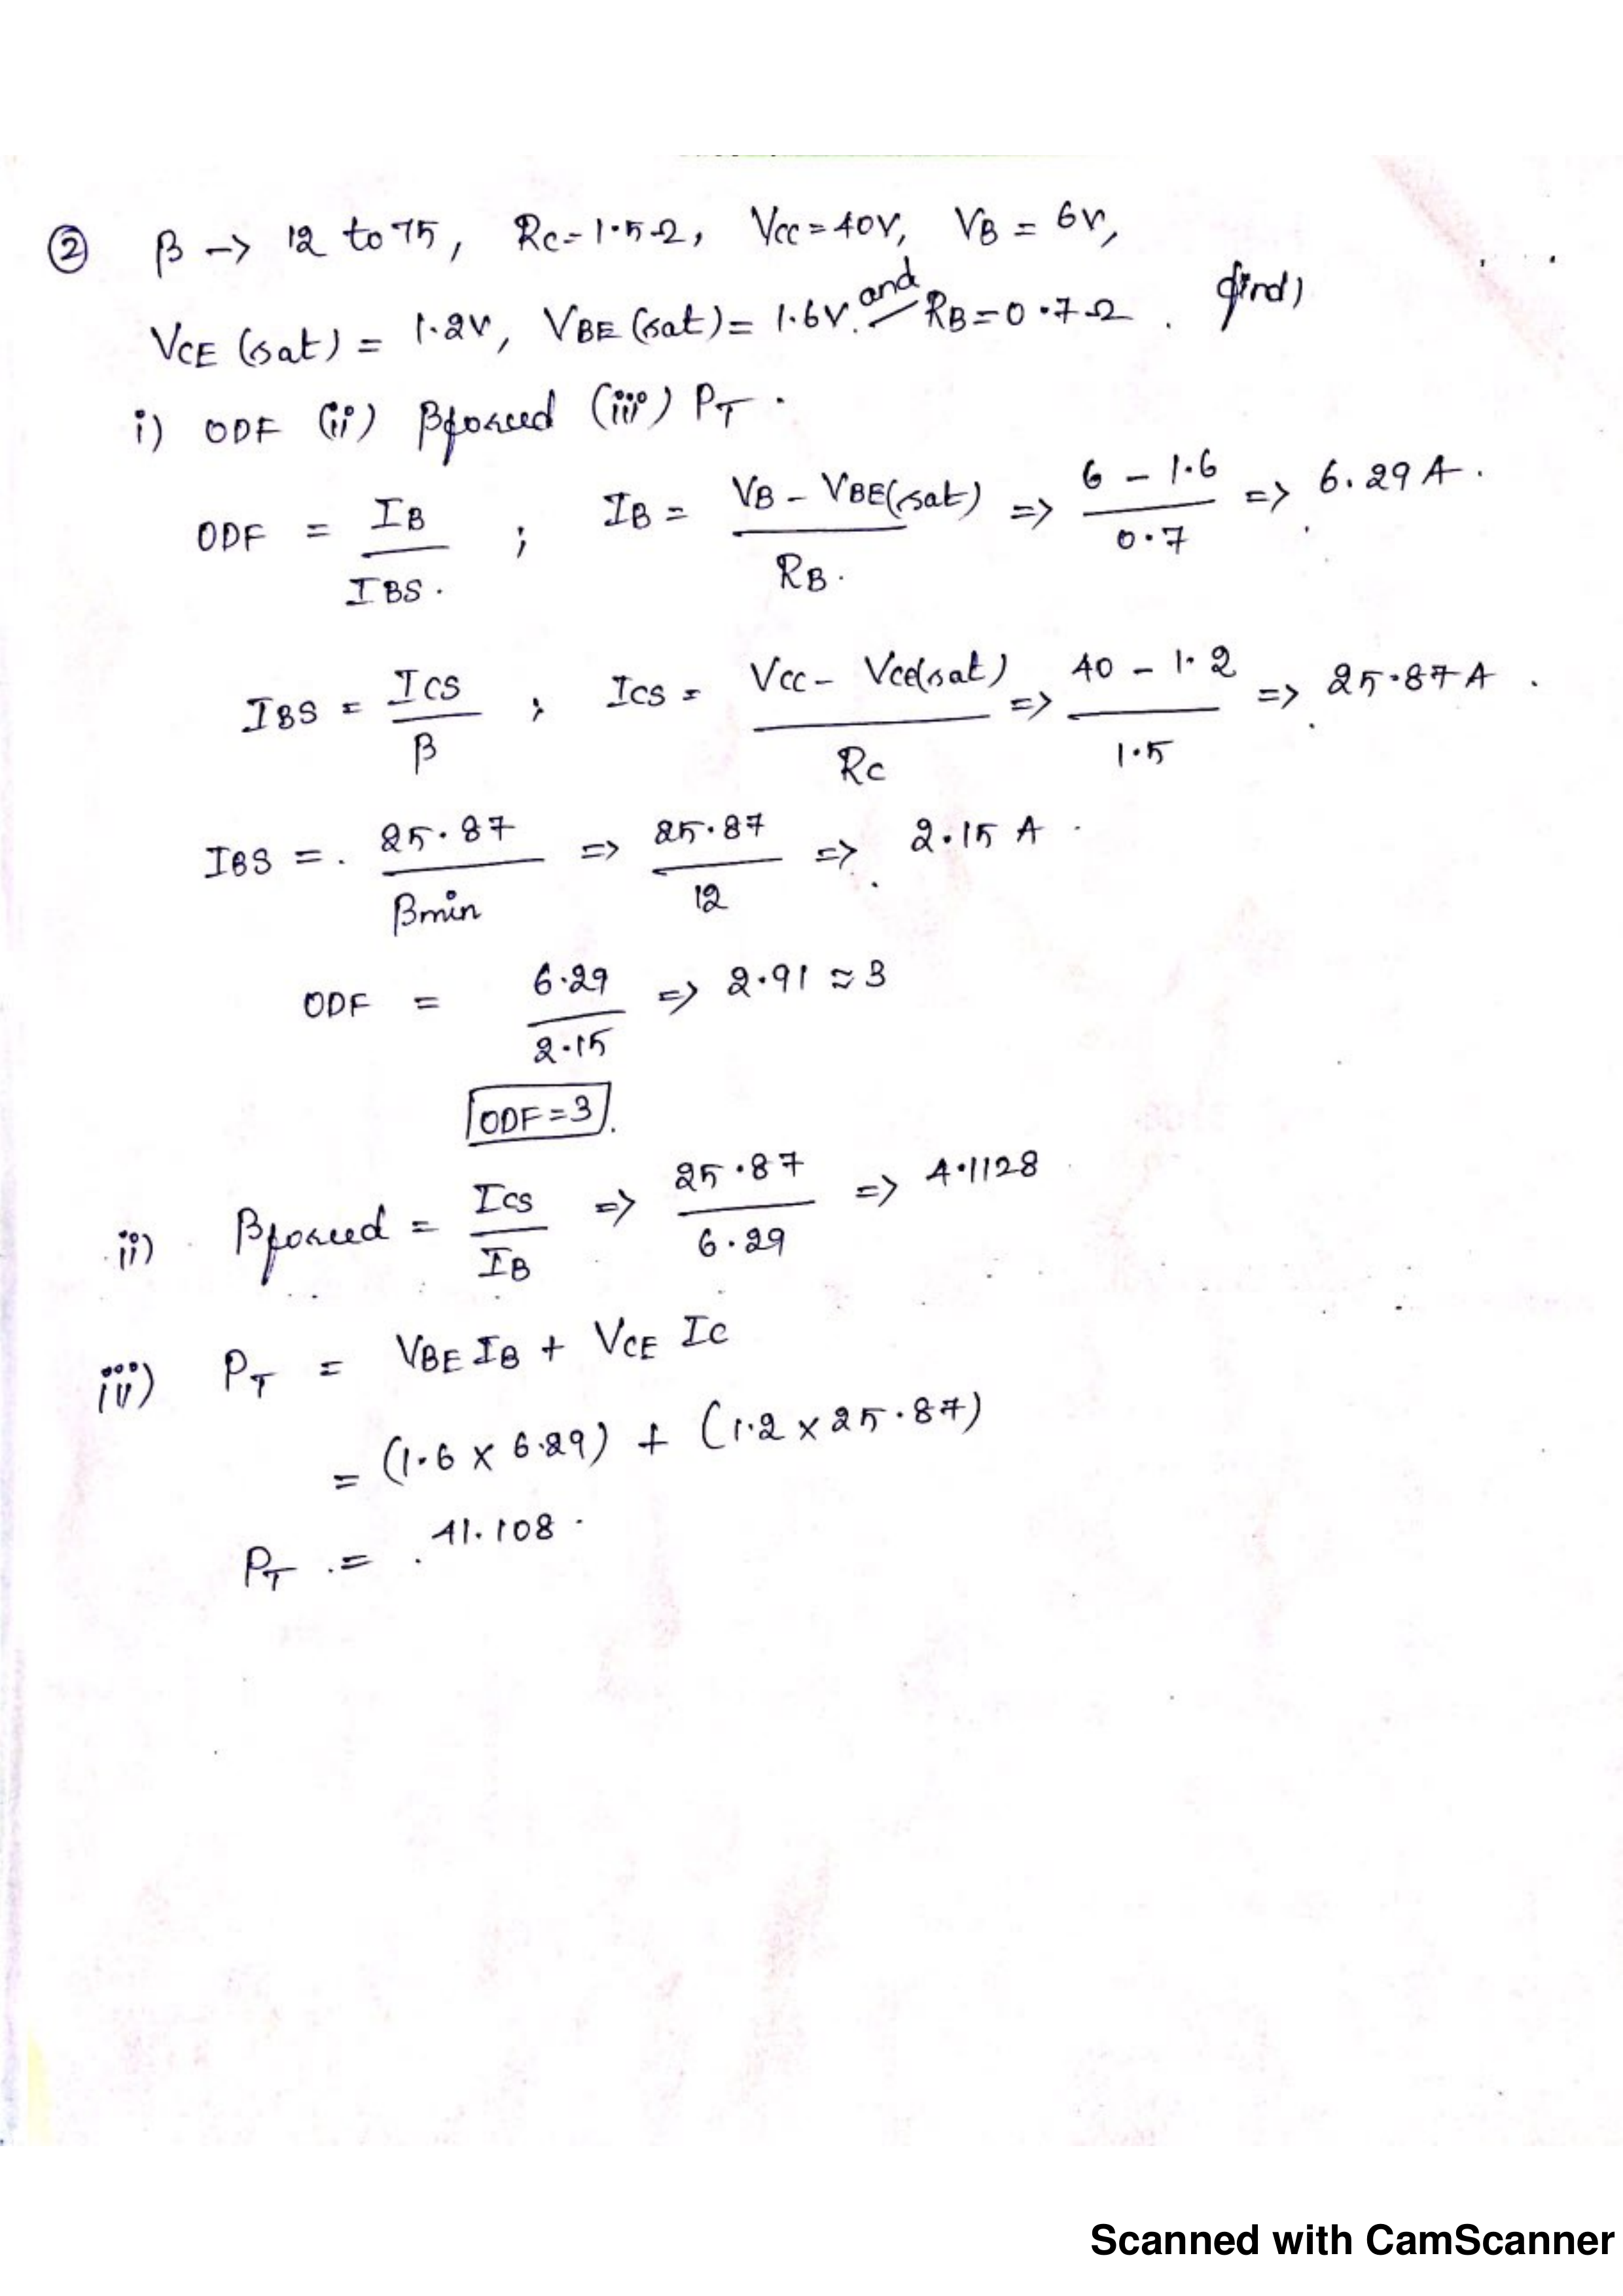 ② β -> 12 to 75, RC = 1.5Ω, VCC = 40V, VB = 6V,
VCE (sat) = 1.2V, VBE (sat) = 1.6V. and RB = 0.7Ω. find,
i) ODF (ii) βforced (iii) PT.
ODF = IB / IBS. ; IB = VB - VBE(sat) / RB. => 6 - 1.6 / 0.7 => 6.29 A.
IBS = ICS / β ; ICS = VCC - VCE(sat) / RC => 40 - 1.2 / 1.5 => 25.87 A.
IBS = 25.87 / βmin => 25.87 / 12 => 2.15 A.
ODF = 6.29 / 2.15 => 2.91 ≈ 3
ODF = 3.
ii) βforced = ICS / IB => 25.87 / 6.29 => 4.1128
iii) PT = VBE IB + VCE IC
= (1.6 x 6.29) + (1.2 x 25.87)
PT = 41.108.
Scanned with CamScanner